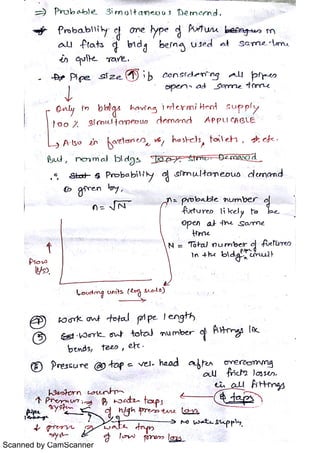 ⇒ Probable Simultaneous Demand.
Probability of one type of fixture in
all flats of bldg being used at same time
is quite rare.
Pipe size ↑ if considering all pipes
open at same time
Only in bldgs having intermittent supply
100% simultaneous demand APPLICABLE
→ Also in hostels, toilets, etc.
But, normal bldgs
∴ Probability of simultaneous demand
is given by,
n = √N
n = probable number of
fixtures likely to be
open at the same
time
N = Total number of fixtures
in the bldg
Flow
Loading units (log scale)
work out total pipe length
work out total number of fittings like
bends, tees, etc.
Pressure @ tap = vel. head after overcoming
all fricn losses
in all fittings
& taps
Western countries
system
water taps
of high pressure loss
→ no water supply
water taps
of low press loss
Scanned by CamScanner